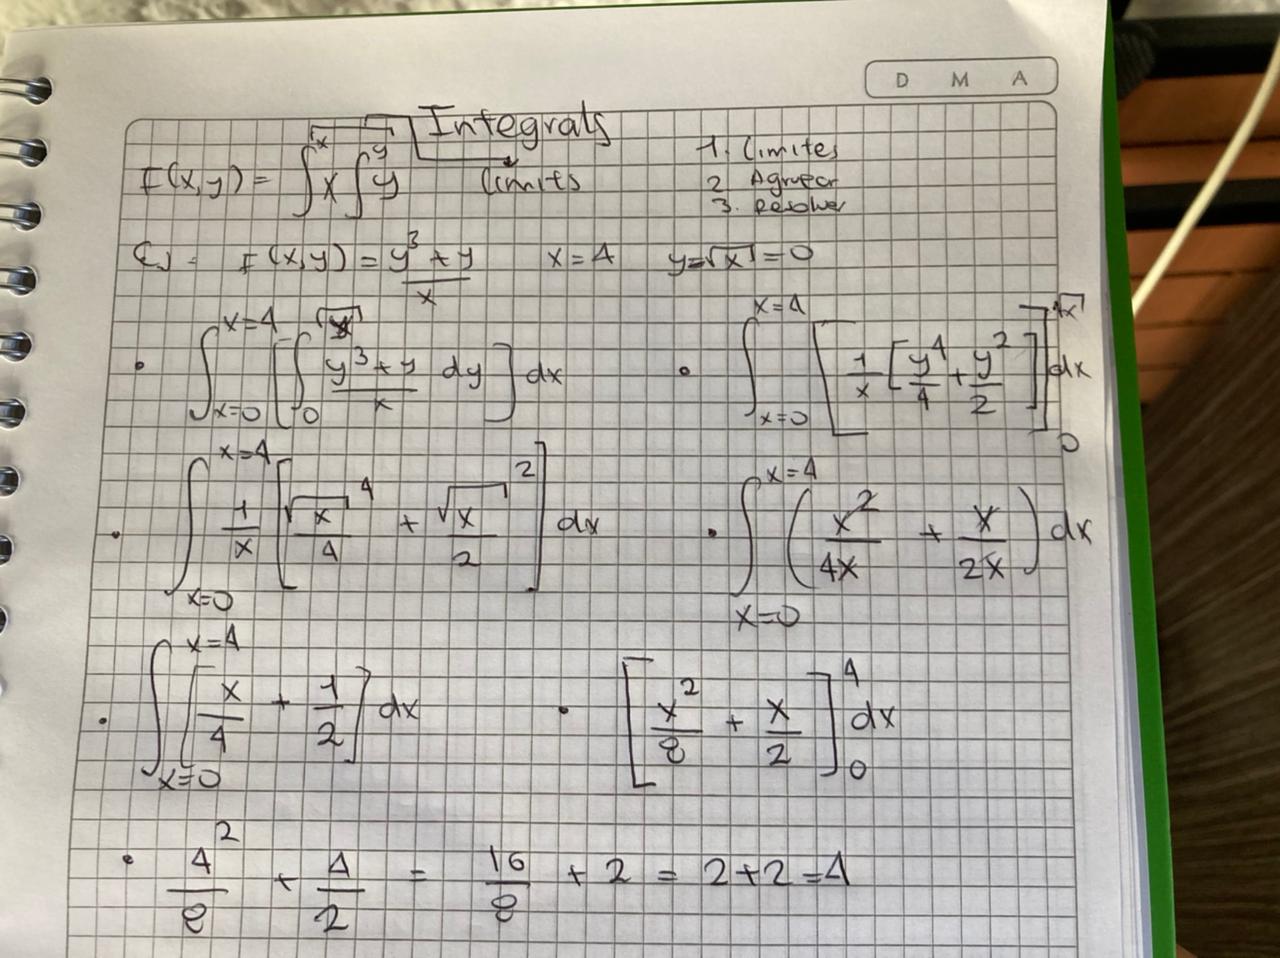 D M A
Integrals
F(x,y) = ∫x^x ∫y^y limits
1. Limites
2. Agrupar
3. Resolver
Ej. F(x,y) = (y³ + y)/x x = 4 y=√x = 0
• ∫_{x=0}^{x=4} [∫_0^{√x} (y³ + y)/x dy] dx
• ∫_{x=0}^{x=4} [1/x [y⁴/4 + y²/2]]_0^{√x} dx
• ∫_{x=0}^{x=4} 1/x [√x⁴/4 + √x²/2] dx
• ∫_{x=0}^{x=4} (x²/4x + x/2x) dx
• ∫_{x=0}^{x=4} [x/4 + 1/2] dx
• [x²/8 + x/2]_0^4 dx
• 4²/8 + 4/2 = 16/8 + 2 = 2+2=4